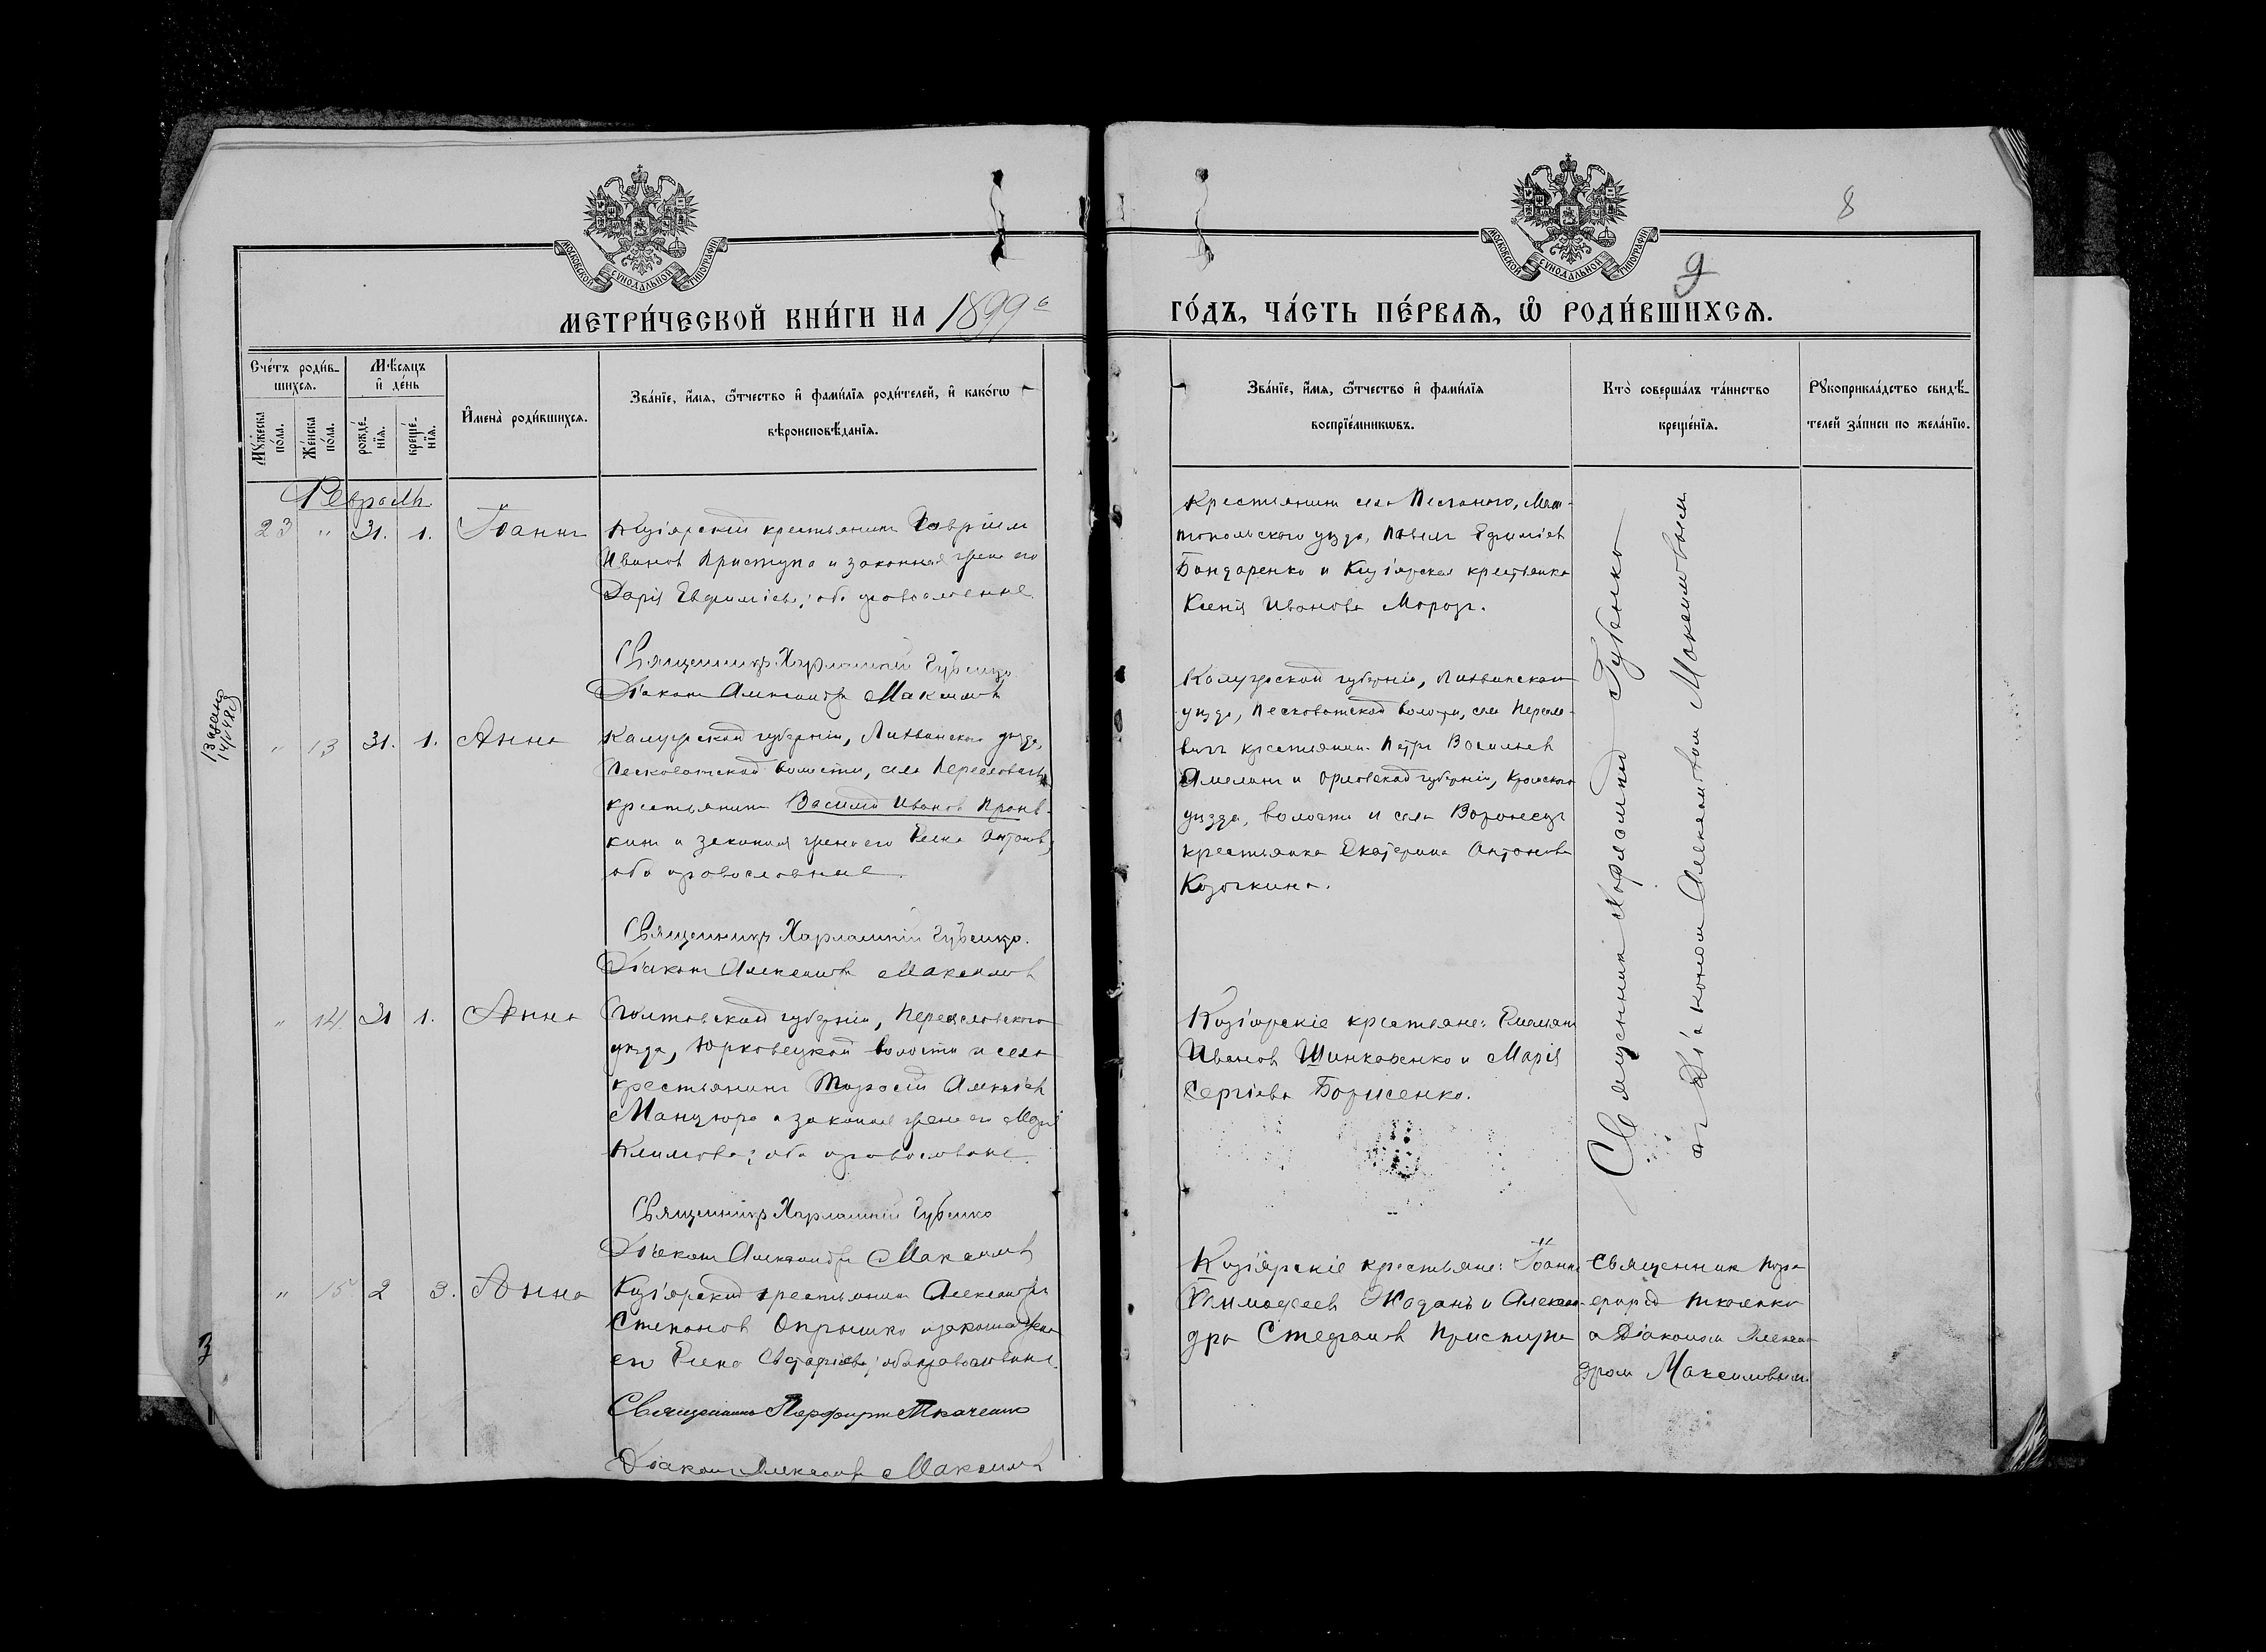 8
9
МОСКОВСКОЙ СУНОДАЛЬНОЙ ТИПОГРАФІИ
МОСКОВСКОЙ СУНОДАЛЬНОЙ ТИПОГРАФІИ
МЕТРИ́ЧЕСКОЙ КНИ́ГИ НА 1899 ГО́ДЪ, ЧА́СТЬ ПЕ́РВАЯ, Ѡ РОДИ́ВШИХСЯ.
Сче́тъ роди́в-
шихся.
Мꙋ́жеска
по́ла.
Же́нска
по́ла.
Мѣ́сяцъ
и҆ де́нь
рожде́-
нїя.
креще́-
нїя.
И҆мена̀ роди́вшихся.
Зва́нїе, и҆́мя, ѻ҆́тчество и҆ фами́лїя роди́телей, и҆ како́гѡ
вѣроисповѣ́данїя.
Зва́нїе, и҆́мя, ѻ҆́тчество и҆ фами́лїя
воспрїе́мникѡвъ.
Кто̀ соверша́лъ та́инство
креще́нїя.
Рꙋкоприкла́дство свидѣ́-
телей за́писи по жела́нїю.
Февраль.
23 " 31. 1. Іоаннъ
Кизіярскій крестьянинъ Гавріилъ
Ивановъ Приступа и законная жена его
Дарія Евфиміева; оба православные.
Священникъ Харлампій Губенко
Діаконъ Александръ Максимовъ
Крестьянинъ села Песчанаго, Мели-
топольскаго уѣзда, Павелъ Ефиміевъ
Бондаренко и Кизіярская крестьянка
Ксенія Иванова Морозъ.
" 13 31. 1. Анна
Калужской губерніи, Лихвинскаго уѣзда,
Песковатской волости, села
крестьянинъ Василій Ивановъ Проня-
кинъ и законная жена его Елена Антонова,
оба православные.
Священникъ Харлампій Губенко.
Діаконъ Александръ Максимовъ
Калужской губерніи, Лихвинскаго
уѣзда, Песковатской волости, села
крестьянинъ Петръ Васильевъ
и Орловской губерніи, Кромскаго
уѣзда, волости и села Воронецъ
крестьянка Екатерина Антонова
Козочкина.
" 14 31 1. Анна
Полтавской губерніи, Переяславскаго
уѣзда, Юрковецкой волости и села
крестьянинъ Тарасій Алексіевъ
Манзюра и законная жена его Марія
Климова; оба православные.
Священникъ Харлампій Губенко
Діаконъ Александръ Максимовъ
Кизіярскіе крестьяне:
Ивановъ Шинкаренко и Марія
Сергіева Борисенко.
Священникъ Харлампій Губенко
съ Діакономъ Александромъ Максимовымъ
" 15 2 3. Анна
Кизіярскій крестьянинъ Александръ
Степановъ Опрышко и законная жена
его Елена Евстафіева; оба православные.
Священникъ Порфирій Ткаченко
Діаконъ Александръ Максимовъ
Кизіярскіе крестьяне: Іоаннъ
Тимофеевъ Жаданъ и Алексан-
дра Стефанова Приступа
Священникъ Пор-
фирій Ткаченко
съ Діакономъ Алексан-
дромъ Максимовымъ.